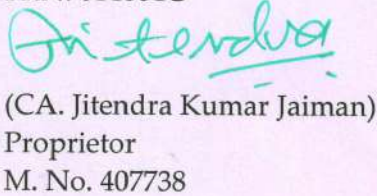 Jitendra
(CA. Jitendra Kumar Jaiman)
Proprietor
M. No. 407738